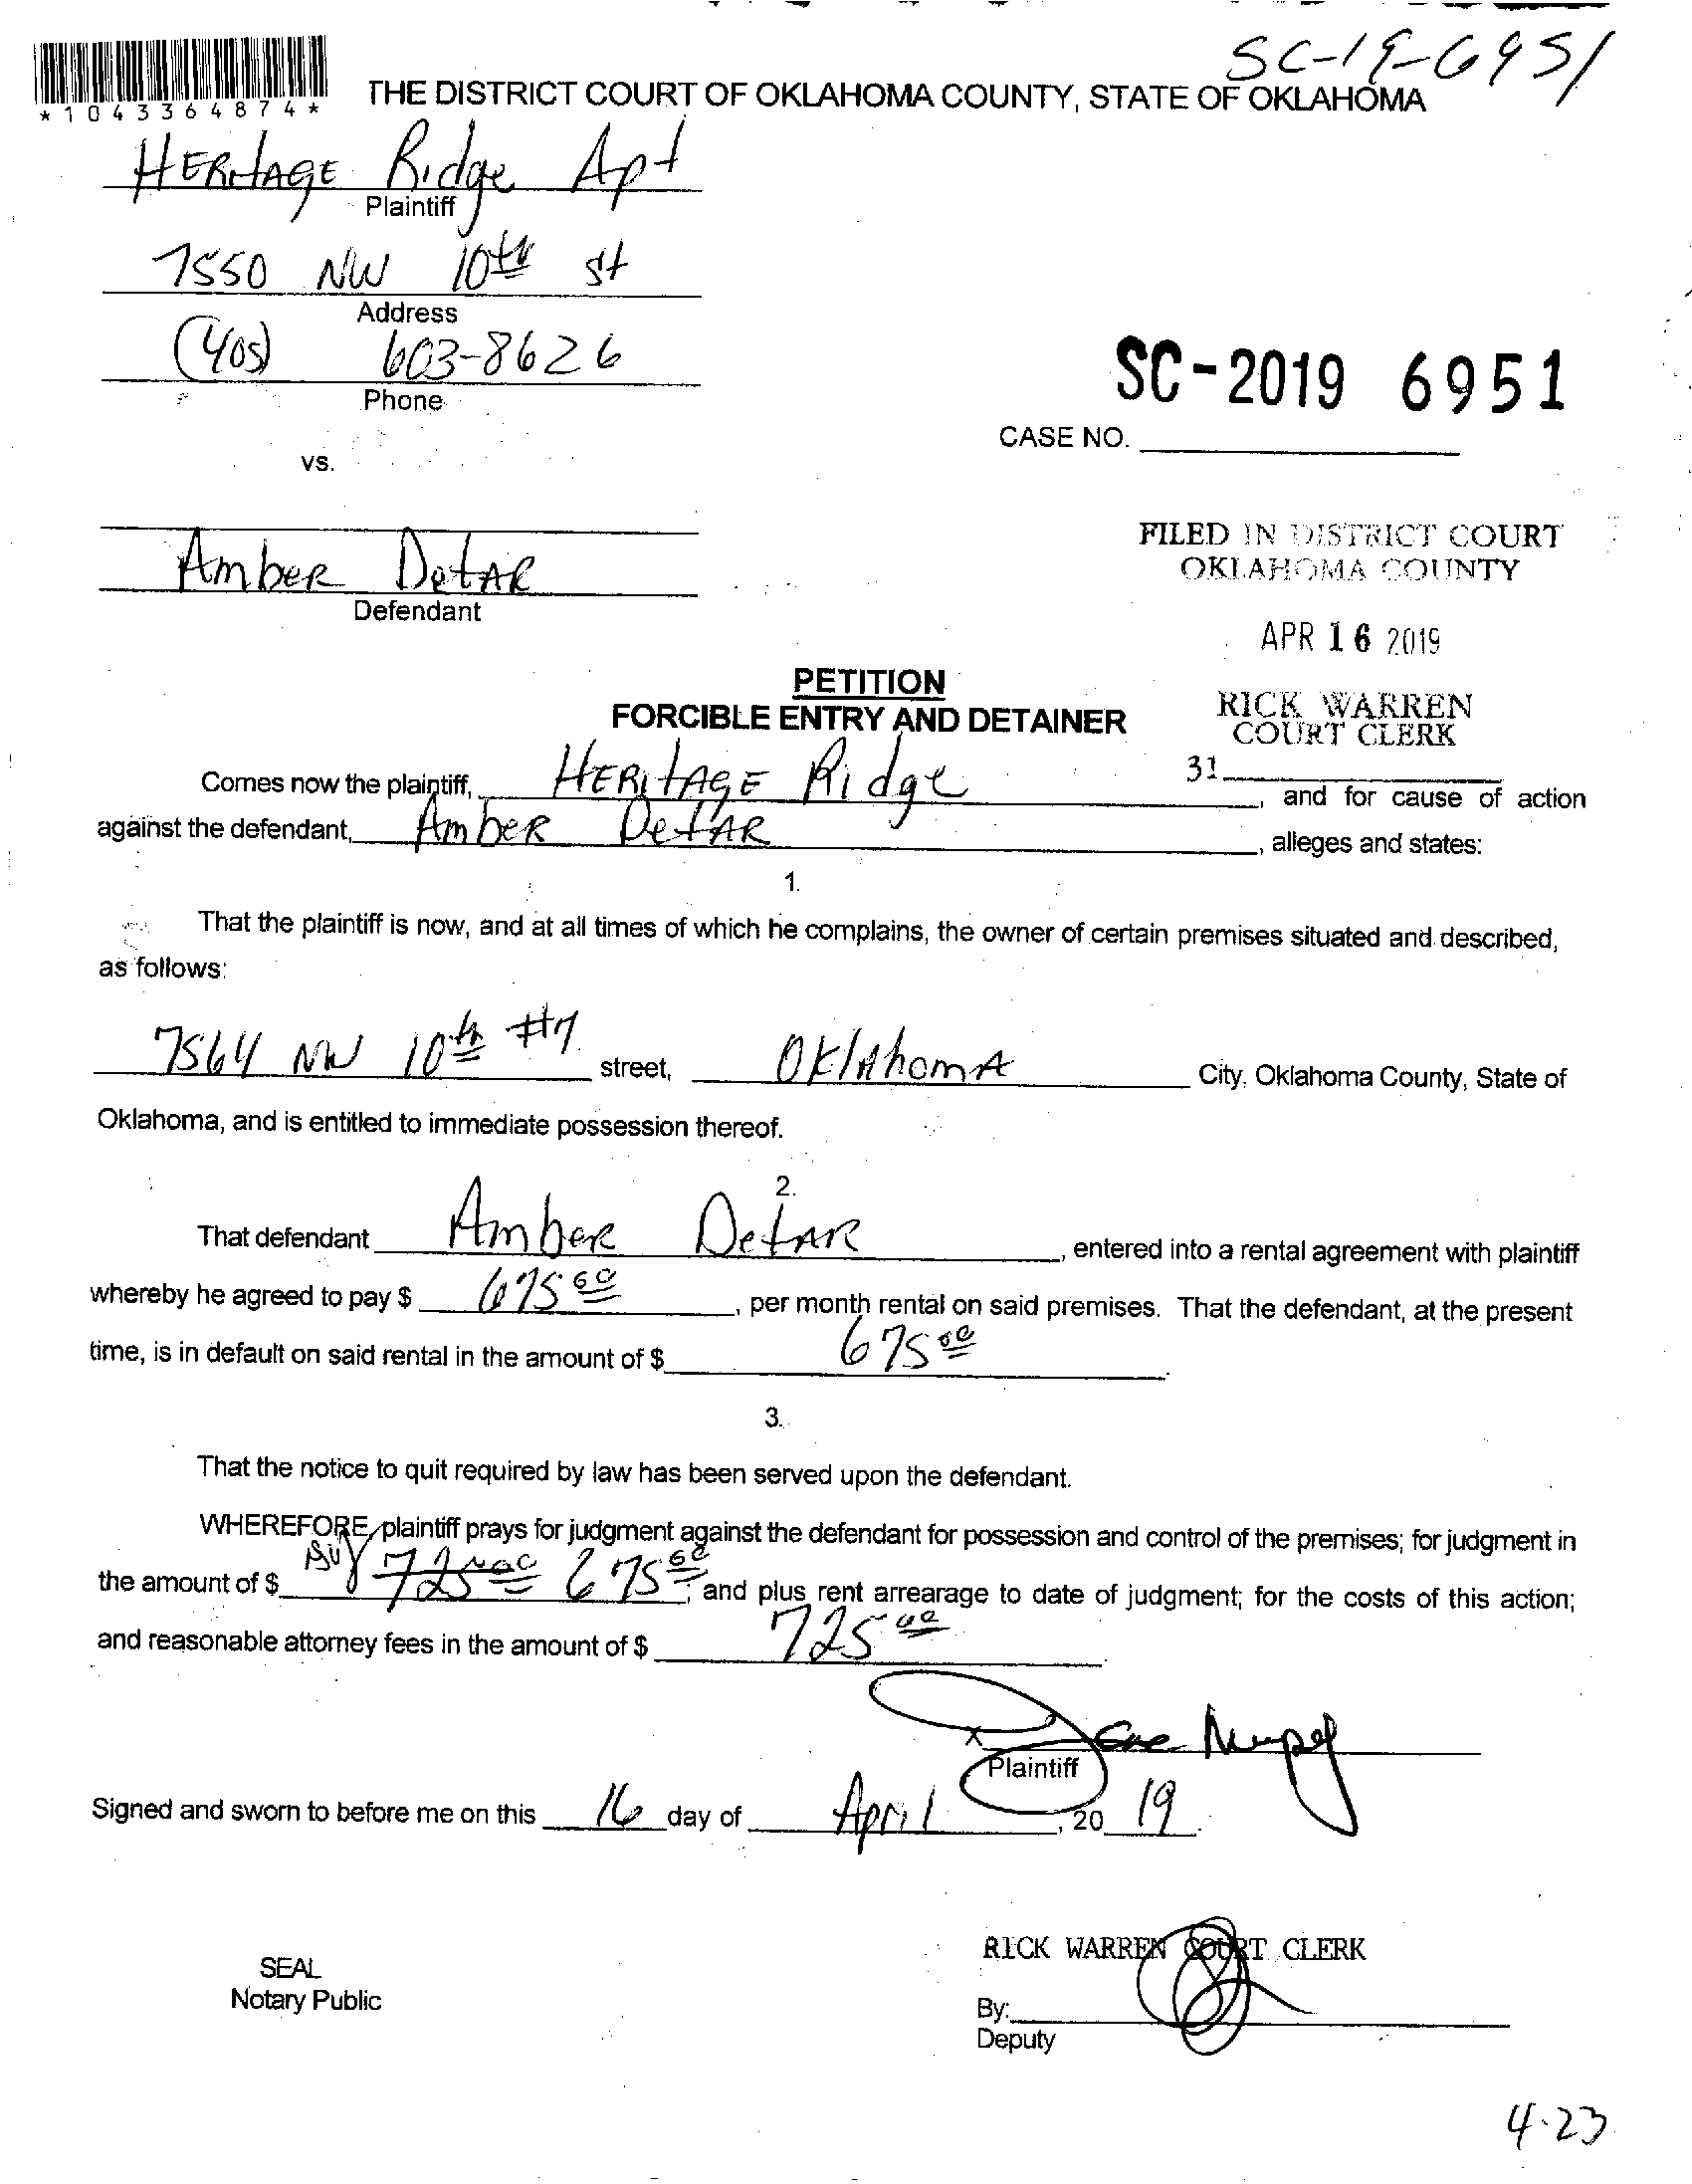 SC-19-6951
*1043364874*
THE DISTRICT COURT OF OKLAHOMA COUNTY, STATE OF OKLAHOMA
HERitAGE Ridge Apt
Plaintiff
7550 NW 10th St
Address
(405) 603-8626
Phone
SC-2019 6951
CASE NO.
vs.
FILED IN DISTRICT COURT
OKLAHOMA COUNTY
AmbeR DetAR
Defendant
APR 16 2019
PETITION
FORCIBLE ENTRY AND DETAINER
RICK WARREN
COURT CLERK
31
Comes now the plaintiff, HERitAGE Ridge, and for cause of action
against the defendant, AmbeR DetAR, alleges and states:
1.
That the plaintiff is now, and at all times of which he complains, the owner of certain premises situated and described,
as follows:
7564 NW 10th #7 street, OklAhomA City, Oklahoma County, State of
Oklahoma, and is entitled to immediate possession thereof.
2.
That defendant AmbeR DetAR, entered into a rental agreement with plaintiff
whereby he agreed to pay $ 675 00, per month rental on said premises. That the defendant, at the present
time, is in default on said rental in the amount of $ 675 00
3.
That the notice to quit required by law has been served upon the defendant.
WHEREFORE, plaintiff prays for judgment against the defendant for possession and control of the premises; for judgment in
the amount of $ 725 00 675 00; and plus rent arrearage to date of judgment; for the costs of this action;
and reasonable attorney fees in the amount of $ 725 00
x
Plaintiff
Signed and sworn to before me on this 16 day of April, 20 19.
RICK WARREN COURT CLERK
SEAL
Notary Public
By:
Deputy
4-23